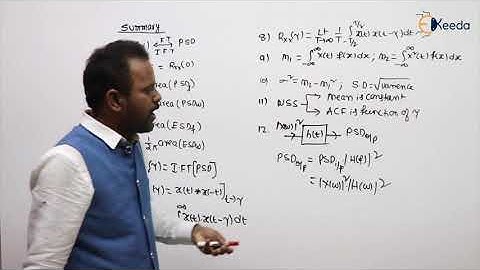 Summary
I.F.T
PSD
I.F.T
= Rxx(0)
area(PSDf)
area(PSDω)
area(ESDf)
1/2π area(ESDω)
(γ) = I.FT[PSD]
(γ) = x(t)*x(-t)]t→γ
∞
∫x(t).x(t-γ)dt
8) Rxx(γ) = Lt T→∞ 1/T ∫-T/2 T/2 x(t) x(t-γ)dt
9) m1 = ∫-∞ ∞ x(t).f(x)dx ; m2 = ∫-∞ ∞ x²(t) f(x)dx
10) σ² = m2 - m1² , S.D = √variance
11) WSS → mean is constant
→ ACF is function of γ
12. h(t) → PSDo/p
PSDo/p = PSDi/p |H(f)|²
= |X(ω)|² |H(ω)|²
Keeda